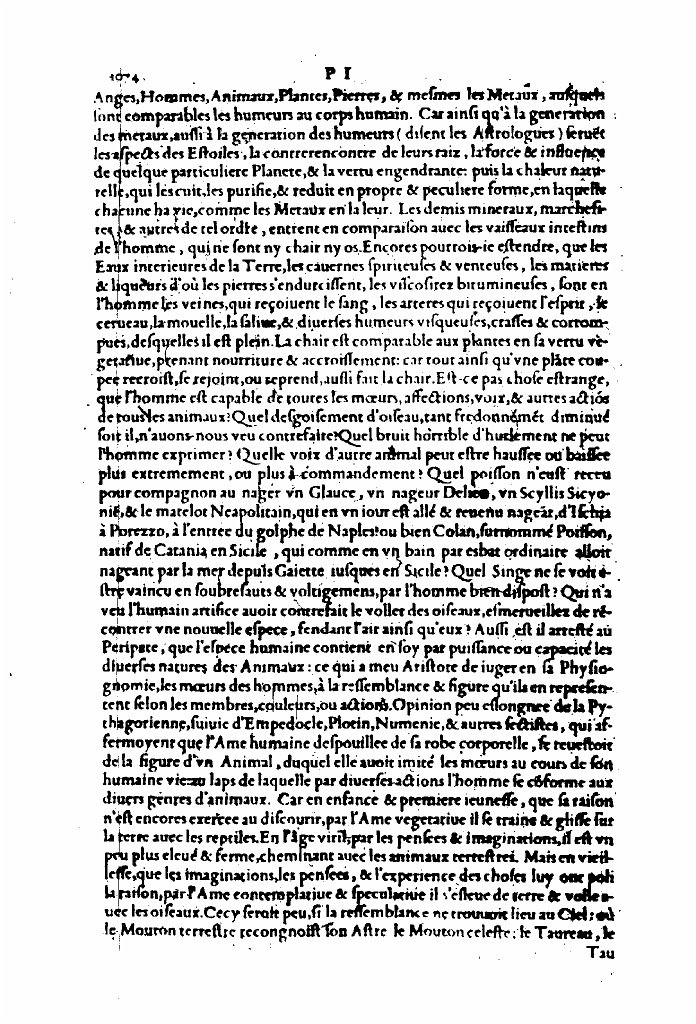 1074. P I
Anges, Hommes, Animaux, Plantes, Pierres, & meſmes les Metaux, auſquels
ſont comparables les humeurs au corps humain. Car ainſi qu'à la generation
des metaux, auſſi à la generation des humeurs ( diſent les Aſtrologues ) ſeruẽt
les aſpects des Eſtoiles, la contrerencontre de leurs raiz, la force & influence
de quelque particuliere Planete, & la vertu engendrante: puis la chaleur natu-
relle, qui les cuit, les purifie, & reduit en propre & peculiere forme, en laquelle
chacune ha vie, comme les Metaux en la leur. Les demis mineraux, marcheſi-
tes, & autres de tel ordre, entrent en comparaiſon auec les vaiſſeaux inteſtins
de l'homme, qui ne ſont ny chair ny os. Encores pourrois-ie eſtendre, que les
Eaux interieures de la Terre, les cauernes ſpiriteuſes & venteuſes, les matieres
& liqueurs d'où les pierres s'endurciſſent, les viſcoſitez bitumineuſes, ſont en
l'homme les veines, qui reçoiuent le ſang, les arteres qui reçoiuent l'eſprit, le
cerueau, la mouelle, la ſaliue, & diuerſes humeurs viſqueuſes, craſſes & corrom-
pues, deſquelles il eſt plein. La chair eſt comparable aux plantes en ſa vertu ve-
getatiue, prenant nourriture & accroiſſement: car tout ainſi qu'vne plãte cou-
pee recroiſt, ſe rejoint, ou reprend, auſſi fait la chair. Eſt-ce pas choſe eſtrange,
que l'homme eſt capable de toutes les mœurs, affections, voix, & autres actiõs
de tous les animaux? Quel deſgoiſement d'oiſeau, tant fredonnémẽt diminué
ſoit il, n'auons-nous veu contrefaire? Quel bruit horrible d'hurlement ne peut
l'homme exprimer? Quelle voix d'autre animal peut eſtre hauſſee ou baiſſee
plus extremement, ou plus à commandement? Quel poiſſon n'euſt receu
pour compagnon au nager vn Glauce, vn nageur Delien, vn Scyllis Sicyo-
nië, & le matelot Neapolitain, qui en vn iour eſt allé & reuenu nageãt, d'Iſchia
à Porezzo, à l'entree du golphe de Naples? ou bien Colan, ſurnommé Poiſſon,
natif de Catania en Sicile, qui comme en vn bain par esbat ordinaire alloit
nageant par la mer depuis Gaiette iuſques en Sicile? Quel Singe ne ſe voit e-
ſtre vaincu en ſoubreſauts & voltigemens, par l'homme bien diſpoſt? Qui n'a
veu l'humain artifice auoir contrefait le voller des oiſeaux, eſmerueillez de rẽ-
contrer vne nouuelle eſpece, fendant l'air ainſi qu'eux? Auſſi eſt il arreſté au
Peripate, que l'eſpece humaine contient en ſoy par puiſſance ou capacité les
diuerſes natures des Animaux: ce qui a meu Ariſtote de iuger en ſa Phyſio-
gnomie, les mœurs des hommes, à la reſſemblance & figure qu'ils en repreſen-
tent ſelon les membres, couleurs, ou actions. Opinion peu eſlongnee de la Py-
thagorienne, ſuiuie d'Empedocle, Plotin, Numenie, & autres ſectiſtes, qui af-
fermoyent que l'Ame humaine deſpouillee de ſa robe corporelle, ſe reueſtoit
de la figure d'vn Animal, duquel elle auoit imité les mœurs au cours de ſon
humaine vie: au laps de laquelle par diuerſes actions l'homme ſe cõforme aux
diuers genres d'animaux. Car en enfance & premiere ieuneſſe, que ſa raiſon
n'eſt encores exercee au diſcourir, par l'Ame vegetatiue il ſe traine & gliſſe ſur
la terre auec les reptiles. En l'âge viril, par les penſees & imaginations, il eſt vn
peu plus eleué & ferme, cheminant auec les animaux terreſtres. Mais en vieil-
leſſe, que les imaginations, les penſees, & l'experience des choſes luy ont poli
la raiſon, par l'Ame contemplatiue & ſpeculatiue il s'eſleue de terre & volle a-
uec les oiſeaux. Cecy ſeroit peu, ſi la reſſemblance ne trouuoit lieu au Ciel: où
le Mouton terreſtre recongnoiſt ſon Aſtre le Mouton celeſte: le Taureau, le
Tau